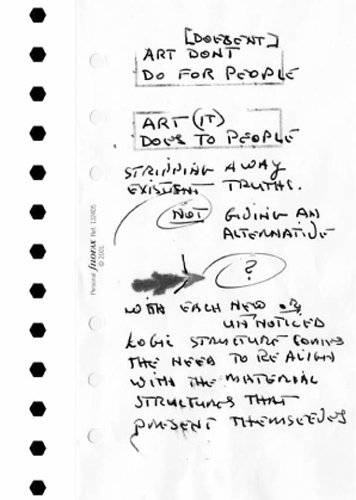 [DOESENT]
ART DONT
DO FOR PEOPLE
ART (IT)
DOES TO PEOPLE
STRIPPING AWAY
EXISTENT TRUTHS.
NOT GIVING AN
ALTERNATIVE
?
WITH EACH NEW OR
UNNOTICED
LOGIC STRUCTURE COMES
THE NEED TO REALIGN
WITH THE MATERIAL
STRUCTURES THAT
PRESENT THEMSELVES
Personal FILOFAX Ref. 132405
© 2001